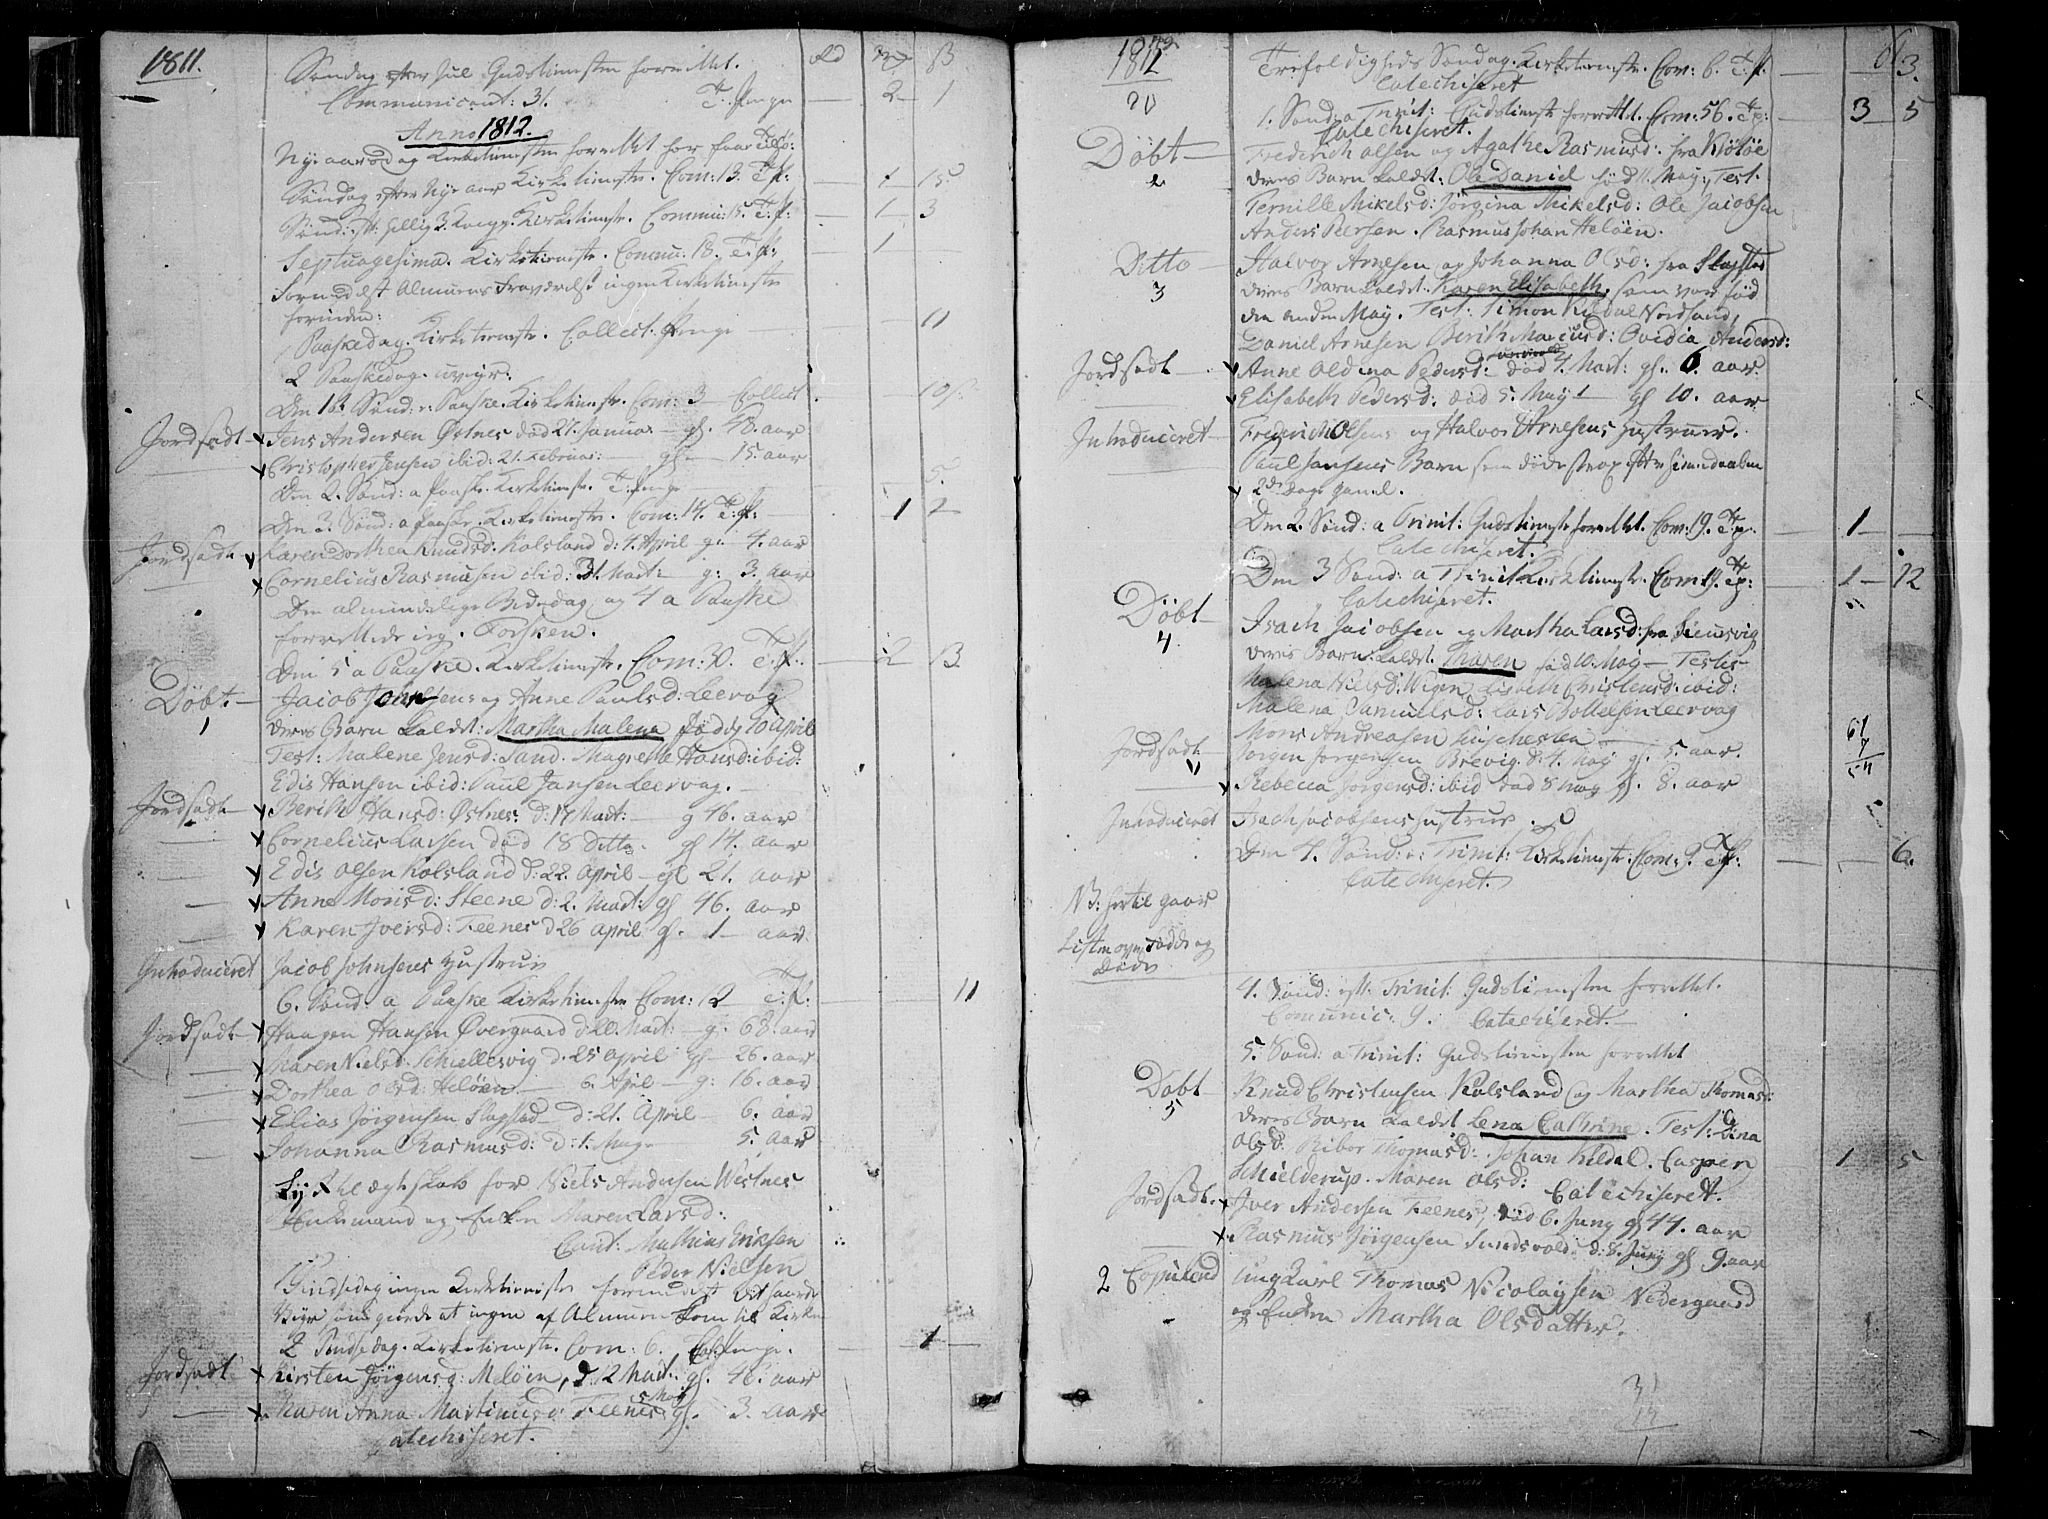 1811.
Søndag efter Jul Gudstienesten forrettet. Rd mk ß
Communicant: 31. T: Penge — 2 — 1
Anno 1812.
Ny-aarsdag Kirketienesten forrettet for faae Folk:
Søndag efter Ny-aar Kirketieneste. Com: 13. T: p: — 1 — 15
Sønd: Hellig 3 Kong. Kirketieneste. Commu: 15. T: p: — 1 — 3
Septuagesima. Kirketieneste. Commu. 18. T: p: — 1
Formedelst Almuens Fraværelse ingen Kirketieneste
forinden:
Paaskedag. Kirketieneste. Collect. Penge — 11
2 Paaskedag. uveyr.
Den 1st Sønd: a: Paaske. Kirketieneste. Com: 3 — Collect — 10 p:
Jordfæst — Jens Andersen Østnes død 27. Januar — gl. 48. aar
Christopher Jensen ibid: 21. Februar: — gl — 15. aar
Den 2. Sønd: a Paaske. Kirketieneste. T: Penge — 5.
Den 3. Sønd: a Paaske. Kirketieneste. Com: 14. T: p: — 1 2
Jordfæst Karen Dorthea Knudsd. Kolsland d: 4. April — g. 4. aar
Cornelius Rasmusen ibid: 31. Mart: g: 3. aar
Den almindelige Bededag og 4 a Paaske
forrettede ieg. Forsken.
Den 5 a Paaske. Kirketieneste. Com: 30. T. p: — 2 13
Døbt. — Jacob Johnsens og Anne Paulsd: Leevog
1 deres Barn kaldet: Martha Malena fød 10 April
Test: Malene Jensd: Sand. Magrethe Hansd: ibid.
Edis Hansen ibid: Paul Jansen Leervag. —
Jordfæst Berith Hansd: Østnes d: 17 Mart: — g 46. aar
Cornelius Larsen død 18 Ditto. gl 14. aar
Edis Olsen Kolsland d: 22. April — gl 21. aar
Anne Monsd: Steene d: 2. Mart: gl 46. aar
Karen Iversd: Teenes d 26 April gl. 1 — aar.
Introduceret Jacob Johnsens Hustrue
6. Sønd: a Paaske Kirketieneste Com: 12 T. p: — 11
Jordfæst — Haagen Hansen Øvergaard d: 20. Mart: — g: 68. aar
Maren Nielsd. Schiellesvig d. 25 April gl — 26. aar
Dorthea Olsd: Meløen — 6. April — g: 16. aar
Elias Jørgensen Slagstad — d: 21. April — 6. aar
Johanna Rasmusd: d: 1. May — 5. aar
Lyst til ægteskab for Niels Andersen Westnes
Enkemand og Enken Maren Larsd:
Caut: Mathias Eriksen
Peder Nielsen
Pindsedag ingen Kirketieneste formedelst det haarde
Veyr som giorde at ingen af Almuen kom til Kirke
2 Pindsedag. Kirketieneste. Com: 6. T: Penge. — 1 —
Jordfæst Kirsten Jørgensd: Meløen, d: 12 Mart: gl. 48. aar
Maren Anna Martinusd: Teenes 5 May gl. 3. aar
Catechiseret.
1812
20
Trefoldigheds Søndag. Kirketieneste. Com: 6. T: p. — 3.
Catechiseret
1. Sønd: a Trinit: Gudstieneste forrettet. Com: 56. T: p: — 3 — 5
Catechiseret.
Døbt — Frederich Olsen og Agathe Rasmusd: fra Kiøtøe
2 deres Barn kaldet: Ole Daniel fød 11. May. Test.
Pernille Mikelsd: Jørgina Mikelsd: Ole Jacobsen
Anders Peersen. Rasmus Johan Meløen.
Ditto — Halvor Arnesen og Johanna Olsd: fra Slagstad
3 deres Barn kaldet. Karen Elisabeth, som var fød
den anden May. Test: Simon Kildal Nordland,
Daniel Arnesen Berith Marcusd: Ovidia Andersd:
Jordfæst — Anne Oldina Pedersd: død 4. Mart: gl. 6. aar.
Elisabeth Pedersd: død 5. May — gl 10. aar
Introduceret — Frederich Olsens og Halvor Arnesens Hustruer.
Paul Jansens Barn som døde strax efter hiemmedaaben
2de Dage gamel.
Den 2. Sønd: a Trinit: Gudstieneste forrettet. Com: 19. T: p: — 1 —
Catechiseret.
Den 3 Sønd: a Trinit: Kirketieneste. Com: 19. T: p: — 1 — 12
Catechiseret.
Døbt — Isach Jacobsen og Martha Larsd: fra
4. deres Barn kaldet. Maren fød 10. May — Testes
Malena Nielsd: Wigen, Lisbeth Christensd: ibid:
Malena Samuelsd: Lars Bottelsen Leervag
Mons Andreasen
Jordfæst Jørgen Jørgensen Brevig. d: 4. May gl. 5. aar.
Rebecca Jørgensd: ibid død 8 May gl. 8. aar
61
7
54
Introduceret Isach Jacobsens Hustrue.
Den 4. Sønd: a: Trinit: Kirketieneste. Com: 9. T: p: — 6.
Catechiseret.
NB: hertil gaar
Listen over Fødde og
Døde
4. Sønd: eft. Trinit: Gudstienesten forrettet.
Communic: 9. Catechiseret. —
5. Sønd: a Trinit: Gudstienesten forrettet
Døbt Knud Christensen Kolsland og Martha Thomasd:
5 deres Barn kaldet Lena Cathrine. Test: Lina
Olsd: Riber Thomasd: Johan Kildal. Casper 1 5
Schielderup. Maren Olsd: Catechiseret.
Jordfæst. Iver Andersen Teenes, død 6. Juny gl 44. aar
Rasmus Jørgensen Sundsvold: d: 8. Juny gl 9. aar
2 Copulerd Ungkarl Thomas Nicolaysen Nedergaard
og Enken Martha Olsdatter.